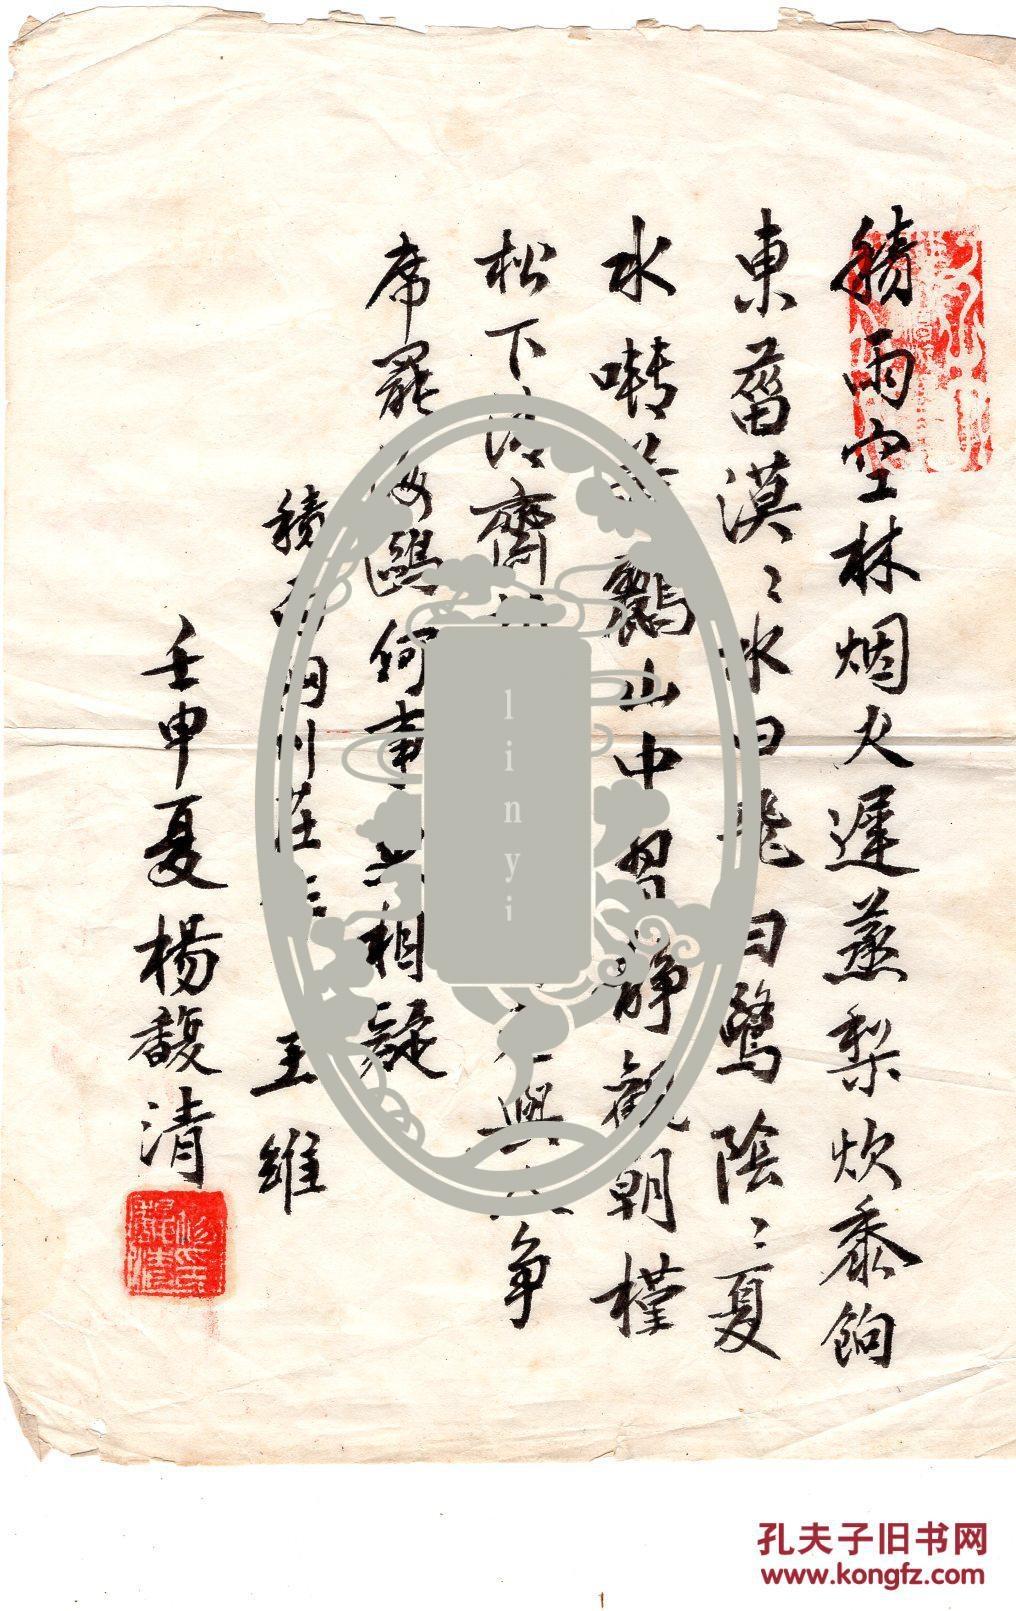 積雨空林烟火遲蒸梨炊黍餉
東菑漠〻水田飛白鷺陰〻夏
水囀鸝山中習靜觀朝槿
松下清齋興争
席罷海鷗何事相疑
積雨輞川莊王維
壬申夏楊馥清
linyi
孔夫子旧书网
www.kongfz.com